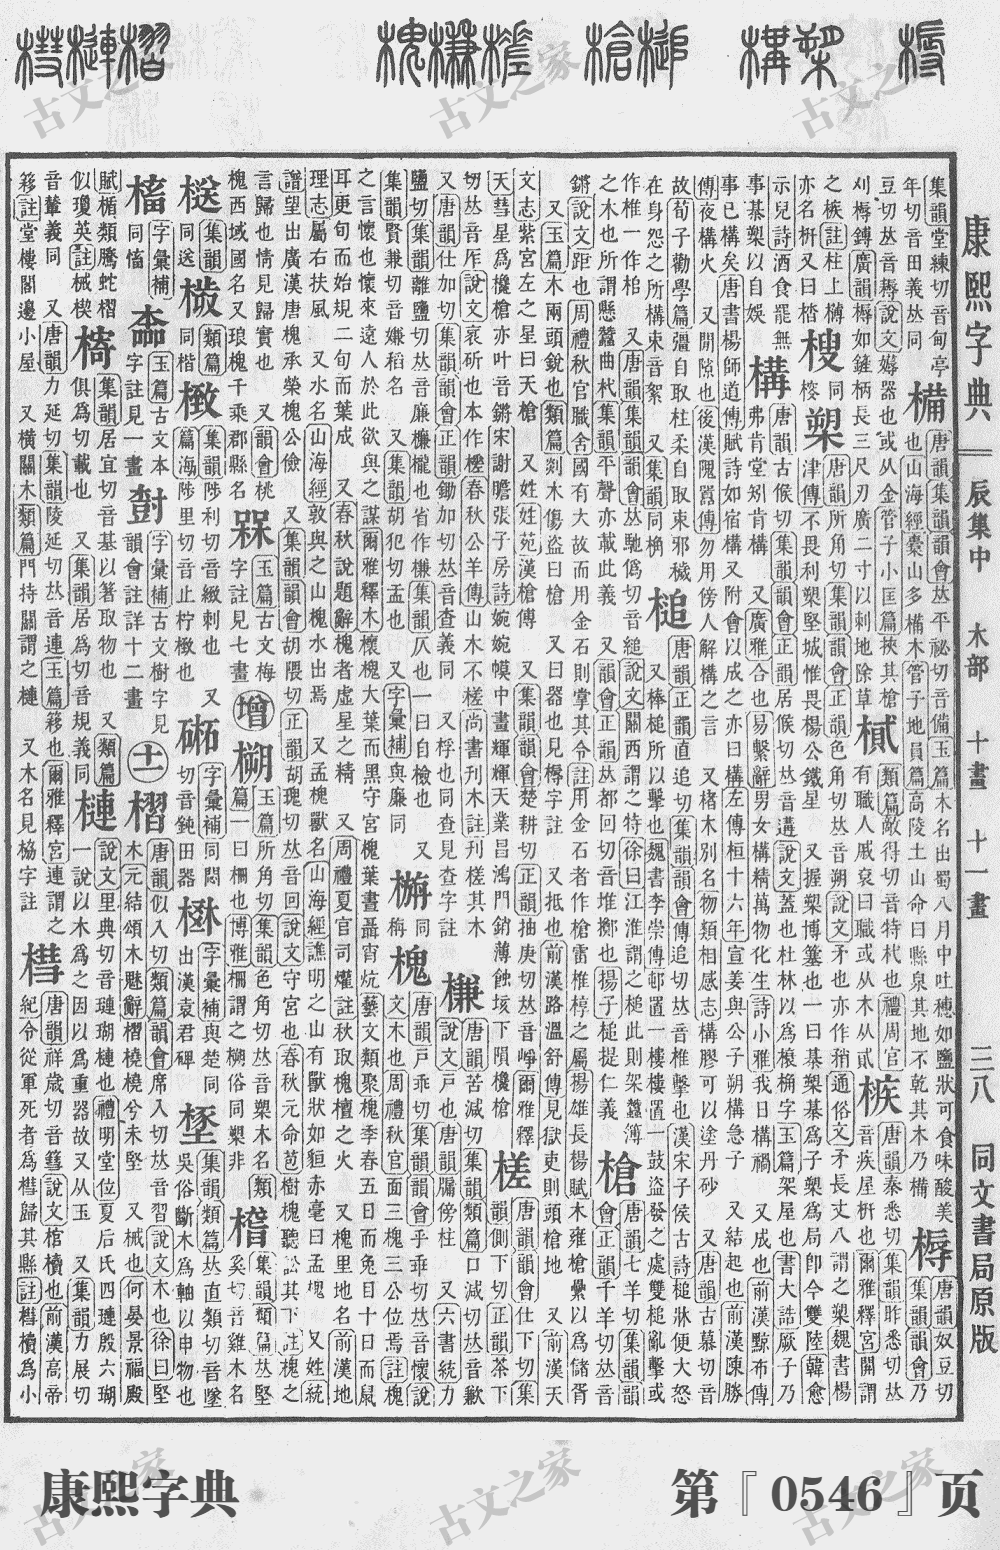 康熙字典
辰集中 木部 十畫 十一畫
三八 同文書局原版
集韻堂練切音甸亭
年切音田義𠀤同
唐韻集韻韻會𠀤平祕切音備玉篇木名出蜀八月中吐穗如鹽狀可食味酸美
也山海經橐山多 木管子地員篇高陵土山命曰縣泉其地不乾其木乃
槈
唐韻奴豆切
集韻韻會乃
豆切𠀤音耨說文薅器也或从金管子小匡篇挾其槍
刈槈鎛廣韻槈如鏟柄長三尺刃廣二寸以刺地除草
樲
類篇敵得切音特杙也禮周官
有職人戚袞曰職或从木从貳
槉
唐韻秦悉切集韻昨悉切𠀤
音疾屋枅也爾雅釋宮開謂
之槉註柱上欂
亦名枅又曰楷
榎
同
榝
槊
唐韻所角切集韻韻會正韻色角切𠀤音朔說文矛也亦作矟通俗文矛長丈八謂之槊魏書楊
津傳不畏利槊堅城惟畏楊公鐵星 又握槊博簺也一曰棊槊棊爲子槊爲局卽今雙陸韓愈
示兒詩酒食罷無
事棊槊以自娛
構
唐韻古候切集韻韻會正韻居候切𠀤音遘說文蓋也杜林以爲椽桷字玉篇架屋也書大誥厥子乃
弗肯堂矧肯構 又廣雅合也易繫辭男女構精萬物化生詩小雅我日構禍 又成也前漢黥布傳
事已構矣唐書楊師道傳賦詩如宿構 又附會以成之亦曰構左傳桓十六年宣姜與公子朔構急子 又結起也前漢陳勝
傳夜構火 又開隙也後漢隗囂傳勿用傍人解構之言 又楮木別名物類相感志構膠可以塗丹砂 又唐韻古慕切音
故荀子勸學篇彊自取柱柔自取束邪穢
在身怨之所構束音絮 又集韻同桷
槌
唐韻正韻直追切集韻韻會傳追切𠀤音椎擊也漢宋子侯古詩槌牀便大怒
又棒槌所以擊也魏書李崇傳邨置一樓樓置一鼓盜發之處雙槌亂擊或
作椎一作棓 又唐韻集韻韻會𠀤馳僞切音縋說文關西謂之特徐曰江淮謂之槌此則架蠶簿
之木也所謂懸蠶曲杙集韻平聲亦載此義 又韻會正韻𠀤都回切音堆擲也揚子槌提仁義
槍
唐韻七羊切集韻韻
會正韻千羊切𠀤音
鏘說文距也周禮秋官職金國有大故而用金石則掌其令註用金石者作槍雷椎椁之屬揚雄長楊賦木雍槍纍以爲儲胥
又玉篇木兩頭銳也類篇剡木傷盜曰槍 又曰器也見槈字註 又抵也前漢路溫舒傳見獄吏則頭槍地 又前漢天
文志紫宮左之星曰天槍 又姓姓苑漢槍傳 又集韻韻會楚耕切正韻抽庚切𠀤音崢爾雅釋
天彗星爲欃槍亦叶音鏘宋謝瞻張子房詩婉婉幙中畫輝輝天業昌鴻門銷薄蝕垓下隕欃槍
槎
唐韻韻會仕下切集
韻側下切正韻茶下
切𠀤音厏說文衺斫也本作㮑春秋公羊傳山木不槎尚書刊木註刊槎其木
又唐韻仕加切集韻韻會正韻鋤加切𠀤音查義同 又桴也同查見查字註
槏
唐韻苦減切集韻類篇口減切𠀤音歉
說文戸也唐韻牖傍柱 又六書統力
鹽切集韻離鹽切𠀤音廉槏櫳也省作槏集韻仄也一曰自檢也
集韻賢兼切音嫌稻名 又集韻胡犯切盂也 又字彙補與廉同
槒
同
槐
唐韻戸乖切集韻韻會乎乖切𠀤音懷說
文木也周禮秋官面三槐三公位焉註槐
之言懷也懷來遠人於此欲與之謀爾雅釋木櫰槐大葉而黑守宮槐葉晝聶宵炕藝文類聚槐季春五日而兔目十日而鼠
耳更旬而始規二旬而葉成 又春秋說題辭槐者虛星之精 又周禮夏官司爟註秋取槐檀之火 又槐里地名前漢地
理志屬右扶風 又水名山海經敦與之山槐水出焉 又孟槐獸名山海經譙明之山有獸狀如貆赤毫曰孟槐 又姓統
譜望出廣漢唐槐承榮槐公儉 又集韻韻會胡隈切正韻胡瑰切𠀤音回說文守宮也春秋元命苞樹槐聽訟其下註槐之
言歸也情見歸實也 又韻會桃
槐西域國名又琅槐千乘郡縣名
槑
玉篇古文梅
字註見七畫
增
槊
玉篇所角切集韻色角切𠀤音槊木名類
篇一曰柵也博雅柵謂之槊俗同槊非
榽
集韻類篇𠀤堅
奚切音雞木名
榹
集韻
同送
類篇
同楷
㮹
集韻陟利切音緻刺也 又
篇海陟里切音止柠㮹也
字彙補同閦
切音鈍田器
楙
字彙補與楚同
出漢袁君碑
集韻類篇𠀤直類切音墜
吳俗斷木爲軸以申物也
字彙補
同㥣
玉篇古文本
字註見一畫
字彙補古文樹字見
韻會註詳十二畫
十一
槢
唐韻似入切類篇韻會席入切𠀤音習說文木也徐曰堅
木元結頌木魅辭槢橈橈兮未堅 又械也何晏景福殿
賦楯類騰蛇槢
似瓊英註械楔
椅
集韻居宜切音基以箸取物也 又類篇
俱爲切載也 又集韻居爲切音規義同
槤
說文里典切音璉瑚槤也禮明堂位夏后氏四璉殷六瑚
一說以木爲之因以爲重器故又从玉 又集韻力展切
音輦義同 又唐韻力延切集韻陵延切𠀤音連玉篇簃也爾雅釋宮連謂之
簃註堂樓閣邊小屋 又橫關木類篇門持關謂之槤 又木名見楊字註
槥
唐韻祥歲切音篲說文棺櫝也前漢高帝
紀令從軍死者爲槥歸其縣註槥櫝爲小
古文之家
古文之家
古文之家
康熙字典
第『0546』页
古文之家
古文之家
古文之家